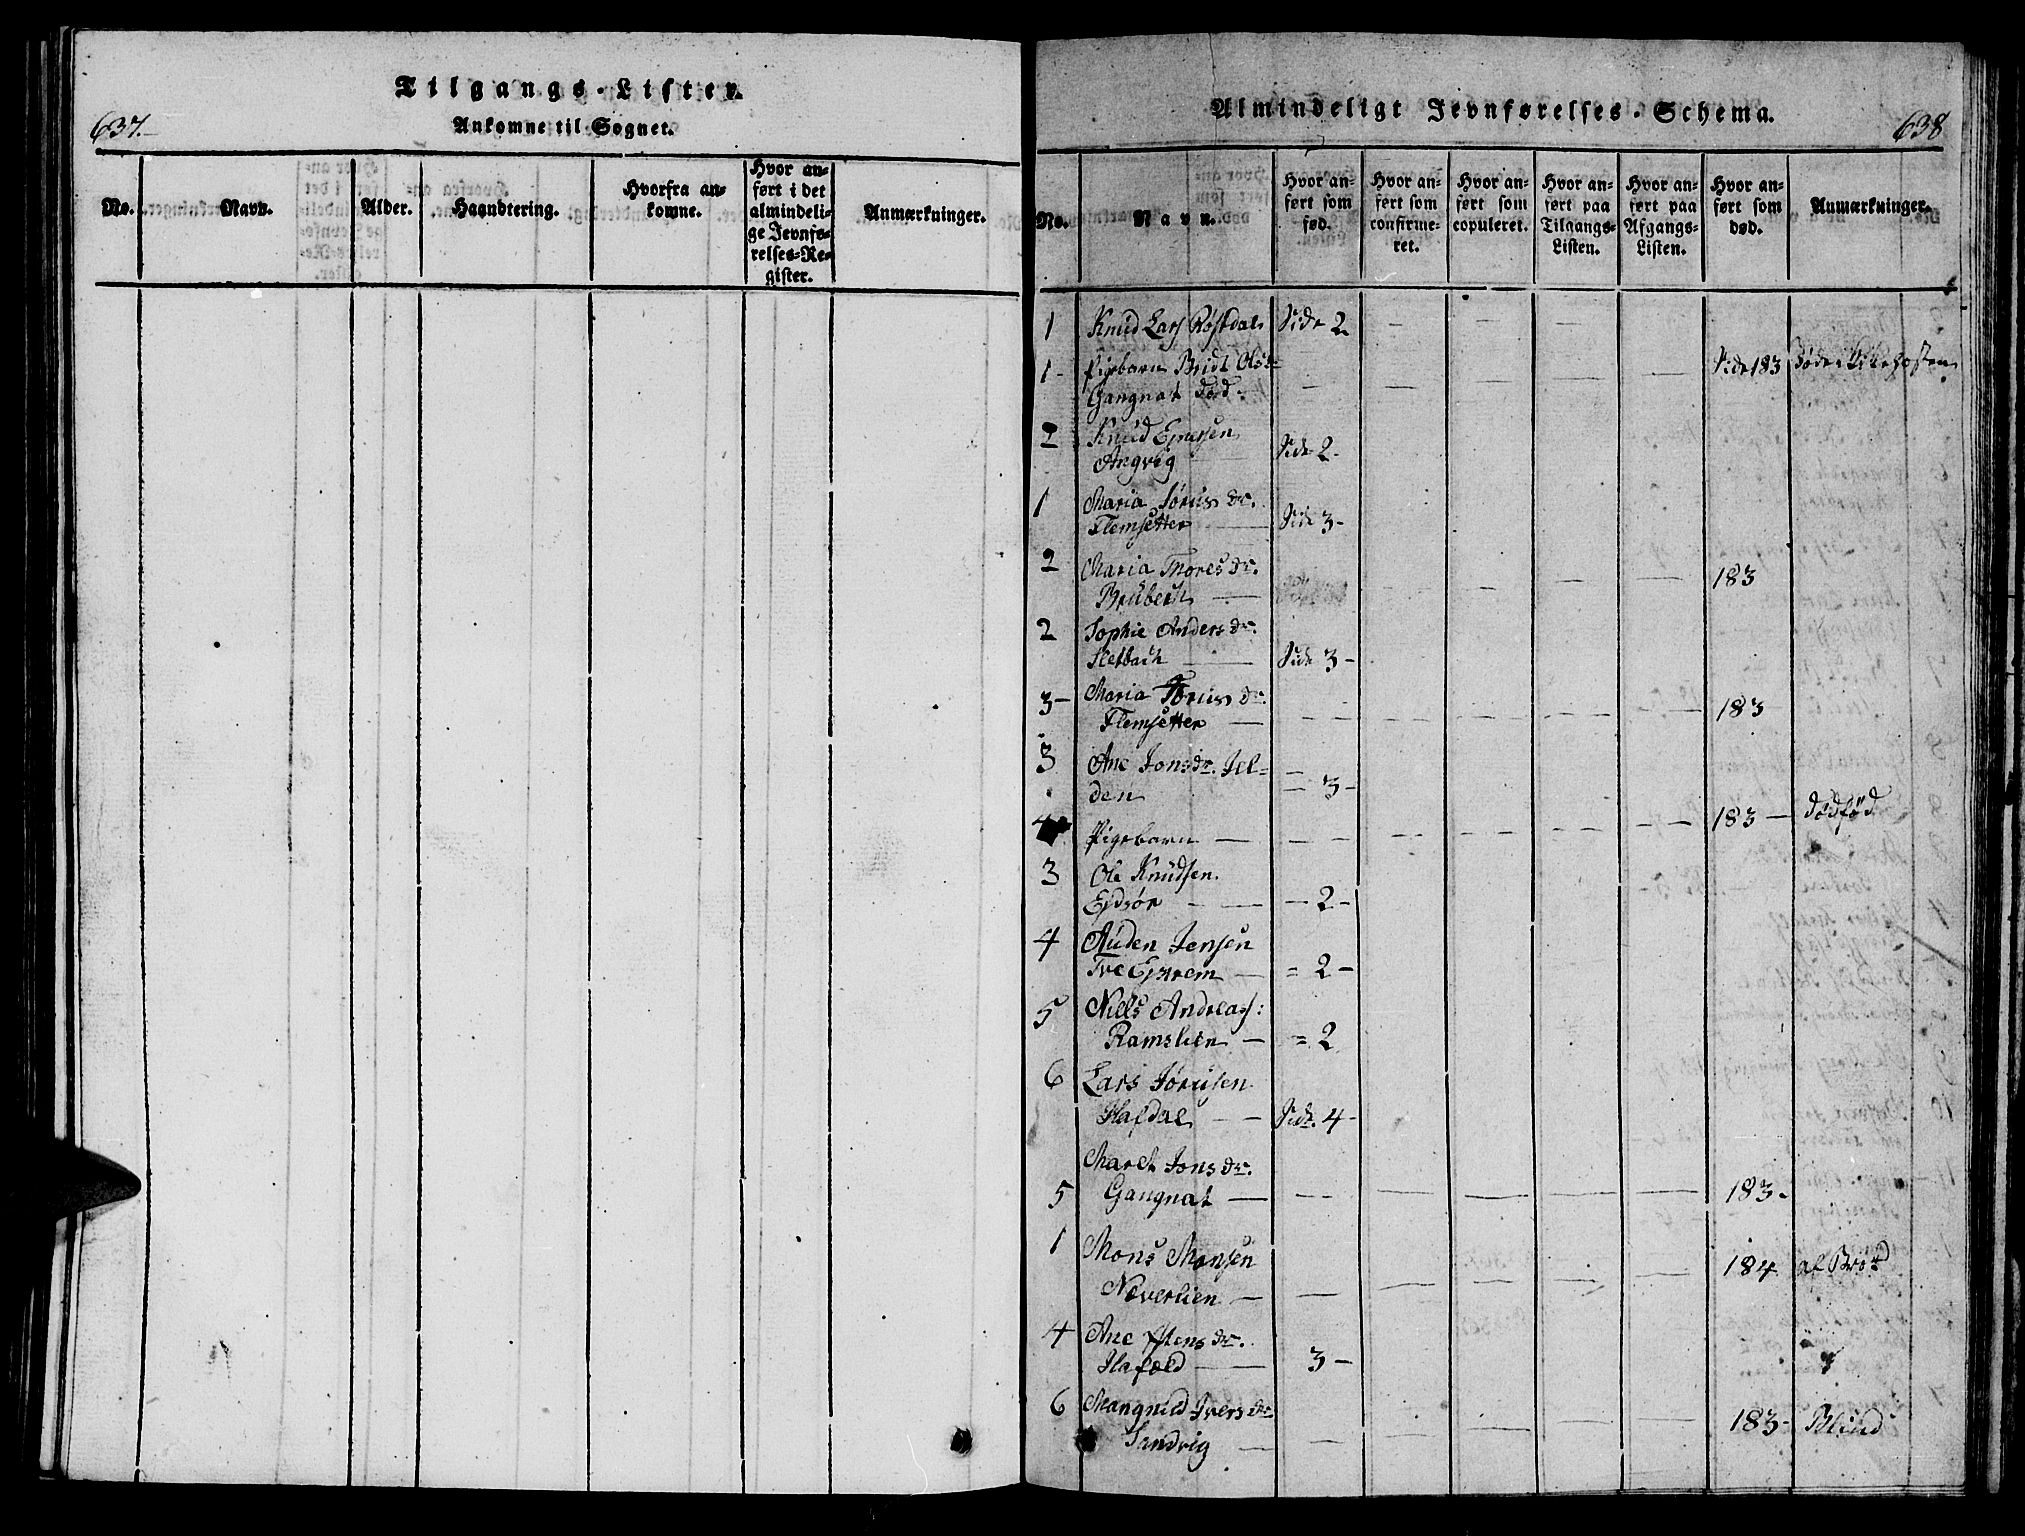 Tilgangs-Lister.
637.
Ankomne til Sognet.
No.
Navn.
Alder.
Haandtering.
Hvorfra an-
komne.
Hvor an-
ført i det
almindeli-
ge Jevnfø-
relses-Re-
gister.
Anmærkninger.
Almindeligt Jevnførelses-Schema.
638
No.
Navn.
Hvor an-
ført som
fød.
Hvor an-
ført som
confirme-
ret.
Hvor an-
ført som
copuleret.
Hvor an-
ført paa
Tilgangs-
Listen.
Hvor an-
ført paa
Afgangs-
Listen.
Hvor an-
ført som
død.
Anmærkninger.
1 Knud Lars Røstdal Side 2 — — —
1 - Pigebarn Bridt Olsdr Side 183
Gangnat død. — — — — —
2 Knud
Angvig — Side 2.
1 Maria dr.
Flemsetter — Side 3 -
2 Maria Thores dr. — — — — 183
—
2 Sophie Anders dr.
— Side 3 -
3 - Maria dr.
Flemsetter — — — — — — 183
3 Ane Jonsdr. Jel=
den = 3 -
4 Pigebarn — — — — — — 183 — dødfød
3 Ole Knudsen
Eidsør — — 2 -
4 Auden Jensen
— = 2 -
5 Niels Andreas:
Ramslien — = 2
6 Lars
Hafdal — Side 4 -
Maret Jons dr.
5 Gangnat — — — — — — 183 -
1 Mons Monsen 184
Neverlien — — — — — —
4 Ane dr.
— 3 -
6 Ivers dr 183 - Blind
Sandvig — — — — — —